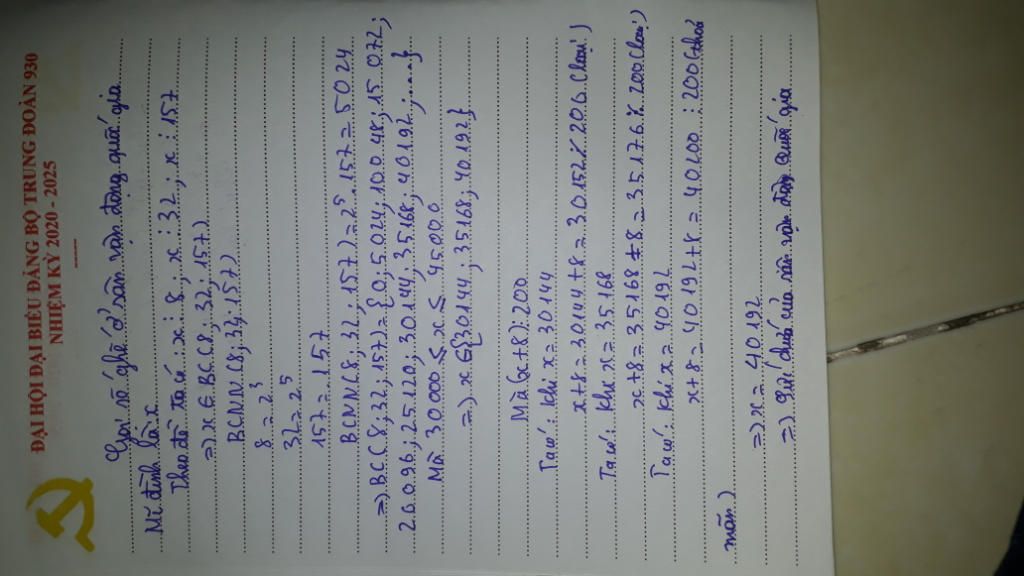 ĐẠI HỘI ĐẠI BIỂU ĐẢNG BỘ TRUNG ĐOÀN 930
NHIỆM KỲ 2020 - 2025
Gọi số ghế ở sân vận động quốc gia
Mĩ đình là x
Theo đề ta có: x ⋮ 8; x ⋮ 32; x ⋮ 157
=> x ∈ BC(8; 32; 157)
BCNN(8; 32; 157)
8 = 2³
32 = 2⁵
157 = 157
BCNN(8; 32; 157) = 2⁵. 157 = 5024
=> BC(8; 32; 157) = {0; 5.024; 10048; 15 072;
20.096; 25120; 30144; 35168; 40192; .....}
Mà 30000 ≤ x ≤ 45000
=> x ∈ {30144; 35168; 40192}
Mà (x+8) ⋮ 200
Ta có: khi x = 30144
x+8 = 30144+8 = 30152 ⋮̸ 200 (loại)
Ta có: khi x = 35168
x+8 = 35168+8 = 35176 ⋮̸ 200 (loại)
Ta có: khi x = 40192
x+8 = 40192+8 = 40200 ⋮ 200 (thỏa
mãn)
=> x = 40192
=> ghế của sân vận động quốc gia